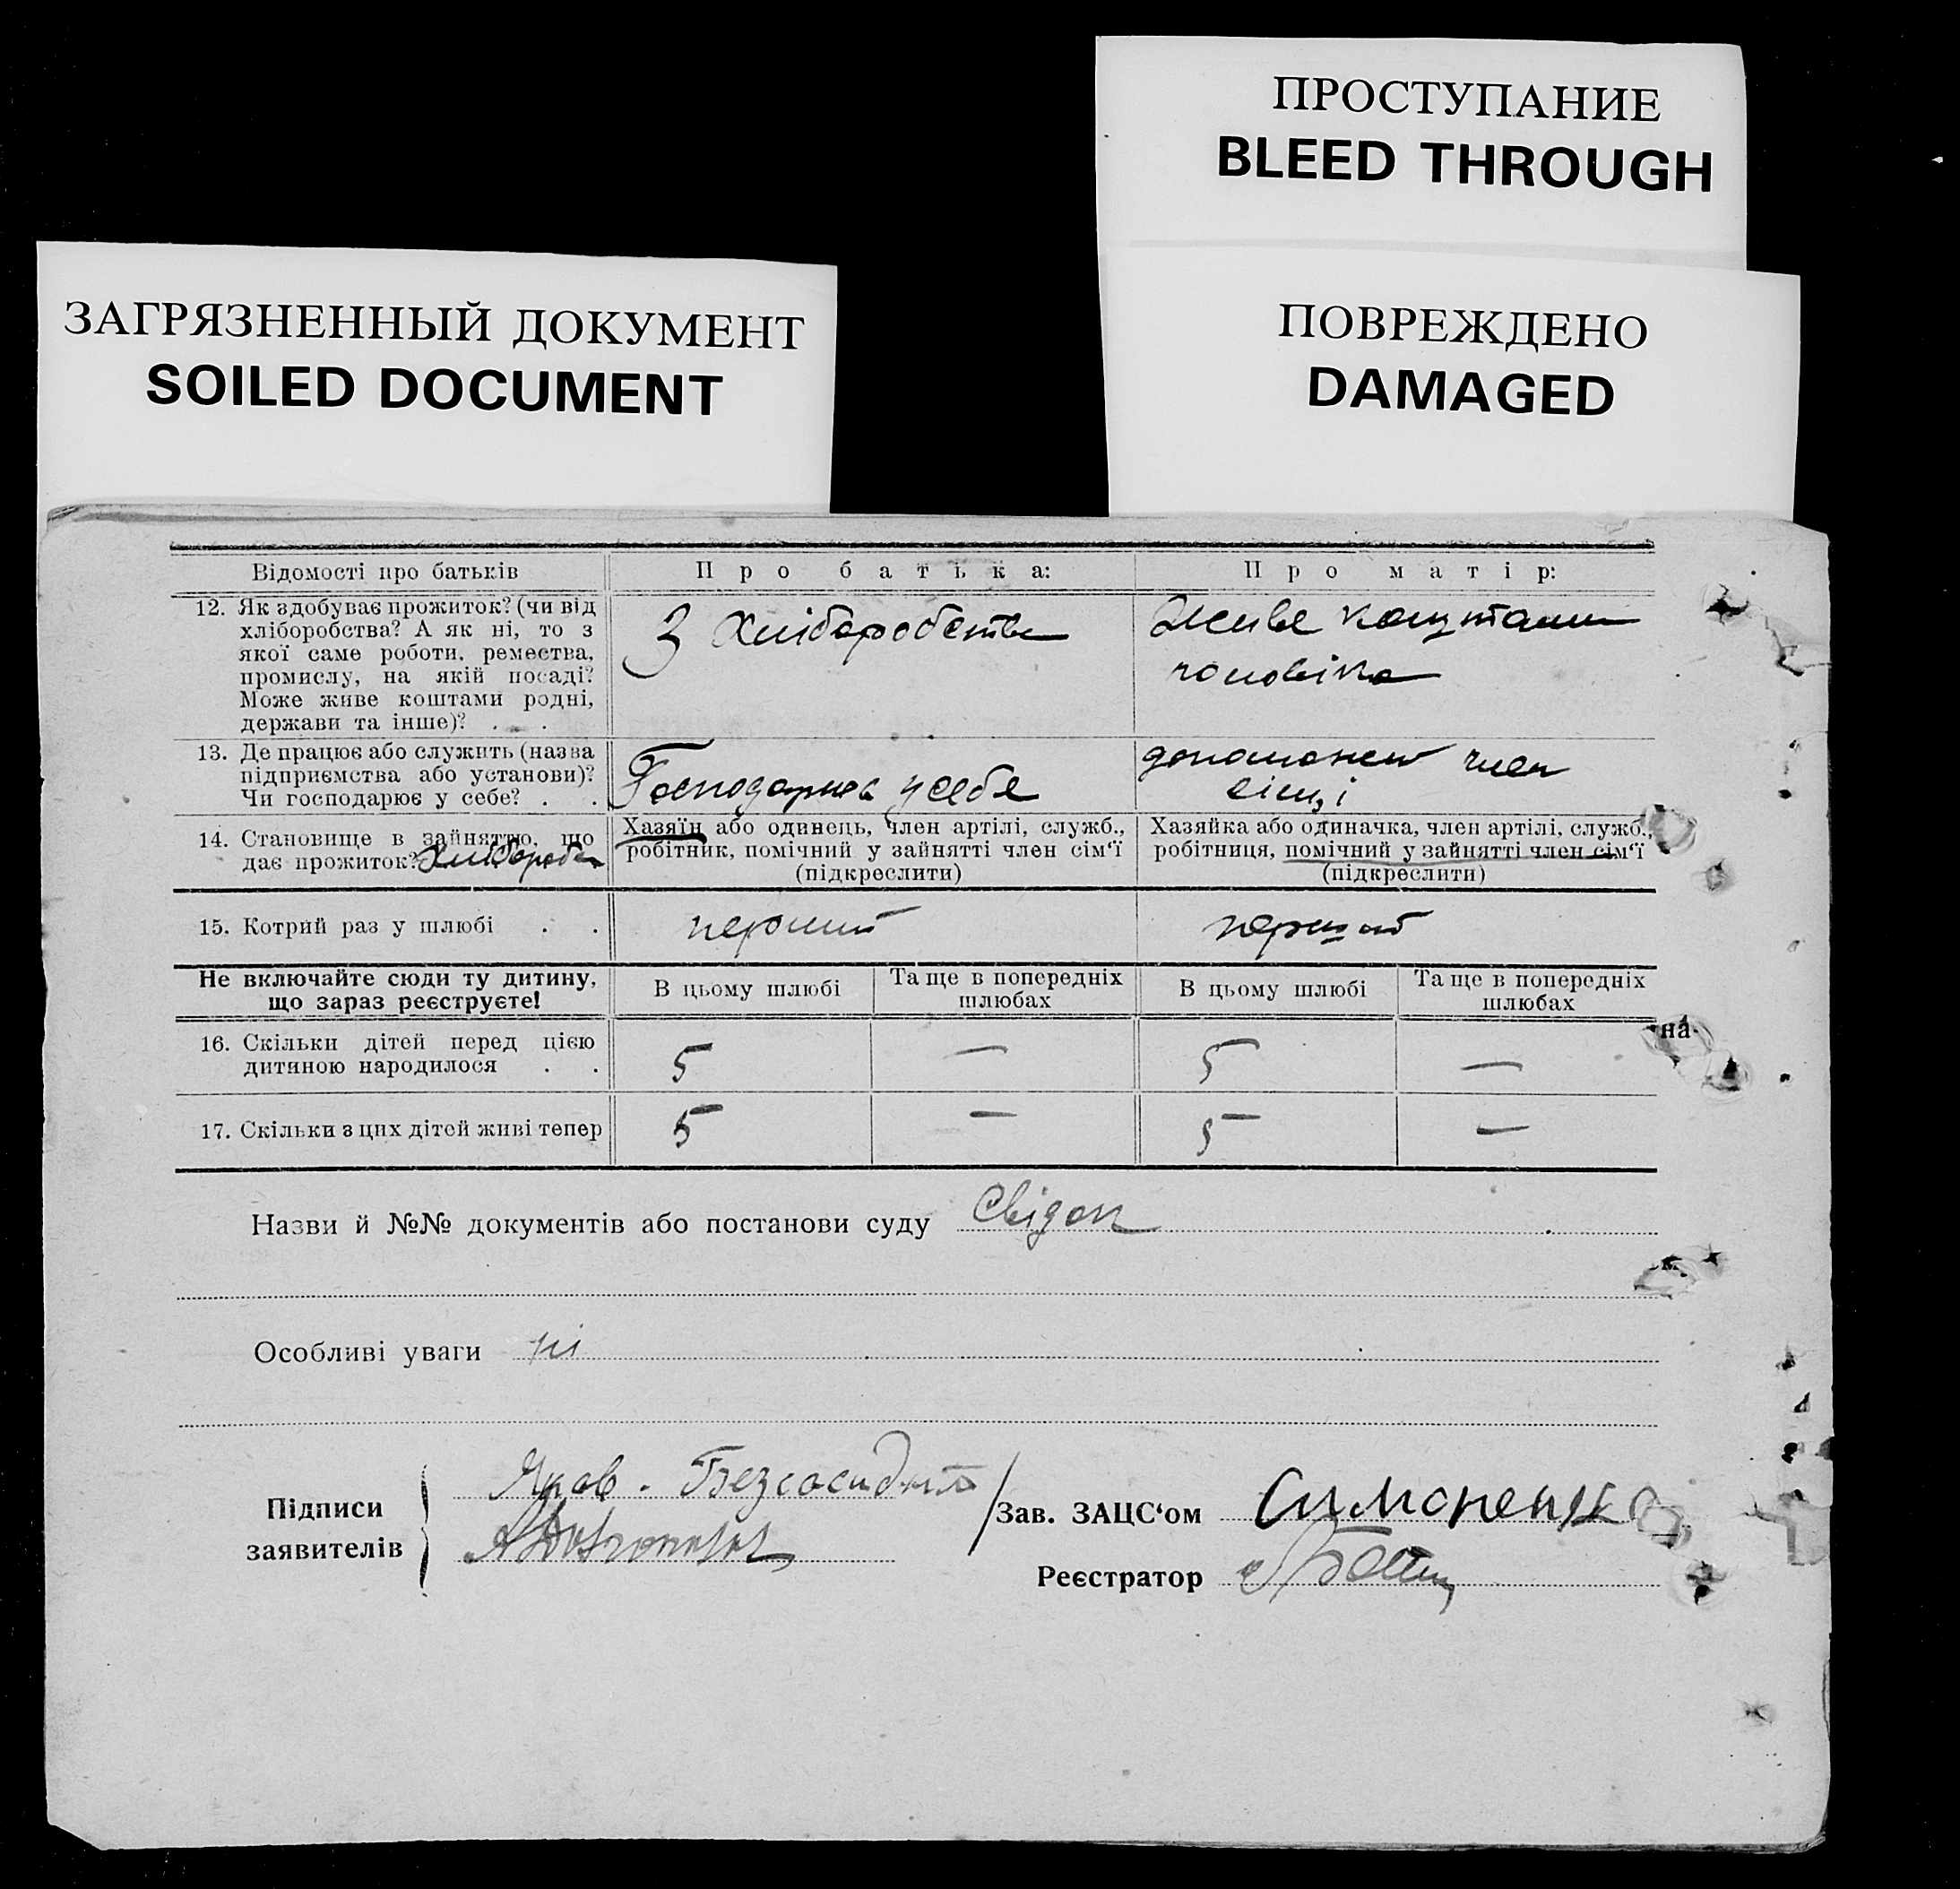 ПРОСТУПАНИЕ
BLEED THROUGH
ЗАГРЯЗНЕННЫЙ ДОКУМЕНТ
SOILED DOCUMENT
ПОВРЕЖДЕНО
DAMAGED
Відомості про батьків
Про батька:
Про матір:
12. Як здобуває прожиток? (чи від
хліборобства? А як ні, то з
якої саме роботи, ремества,
промислу, на якій посаді?
Може живе коштами родні,
держави та інше)? . .
З Хліборобства
Живе коштами
чоловіка
13. Де працює або служить (назва
підприємства або установи)?
Чи господарює у себе? . .
Господарює у себе
член
14. Становище в зайняттю, що
дає прожиток? Хлібороб
Хазяїн або одинець, член артілі, служб.,
робітник, помічний у зайнятті член сім‘ї
(підкреслити)
Хазяйка або одиначка, член артілі, служб.,
робітниця, помічний у зайнятті член сім‘ї
(підкреслити)
15. Котрий раз у шлюбі . .
перший
перший
Не включайте сюди ту дитину,
що зараз реєструєте!
В цьому шлюбі
Та ще в попередніх
шлюбах
В цьому шлюбі
Та ще в попередніх
шлюбах
16. Скільки дітей перед цією
дитиною народилося . .
5
—
5
—
17. Скільки з цих дітей живі тепер
5
—
5
—
на
Назви й №№ документів або постанови суду Свідок
Особливі уваги ні
Підписи
заявителів
Зав. ЗАЦС‘ом Симоненко
Реєстратор